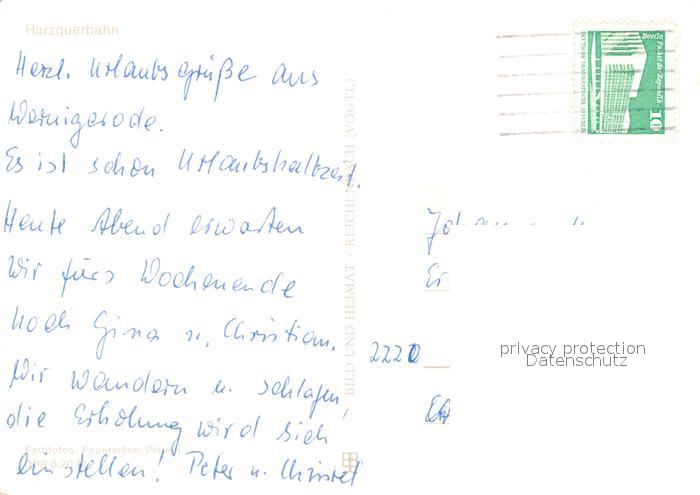 Harzquerbahn
Herzl. Urlaubsgrüße aus
Wernigerode.
Es ist schon Urlaubshalbzeit.
Heute Abend erwarten
wir fürs Wochenende
noch Gina u. Christian.
Wir wandern u. schlafen,
die Erholung wird sich
einstellen! Peter u. Christel
Farbfotos: Feuereißen, Plauen
BILD UND HEIMAT · REICHENBACH (VOGTL)
Berlin Palast der Republik
10
2220
privacy protection
Datenschutz